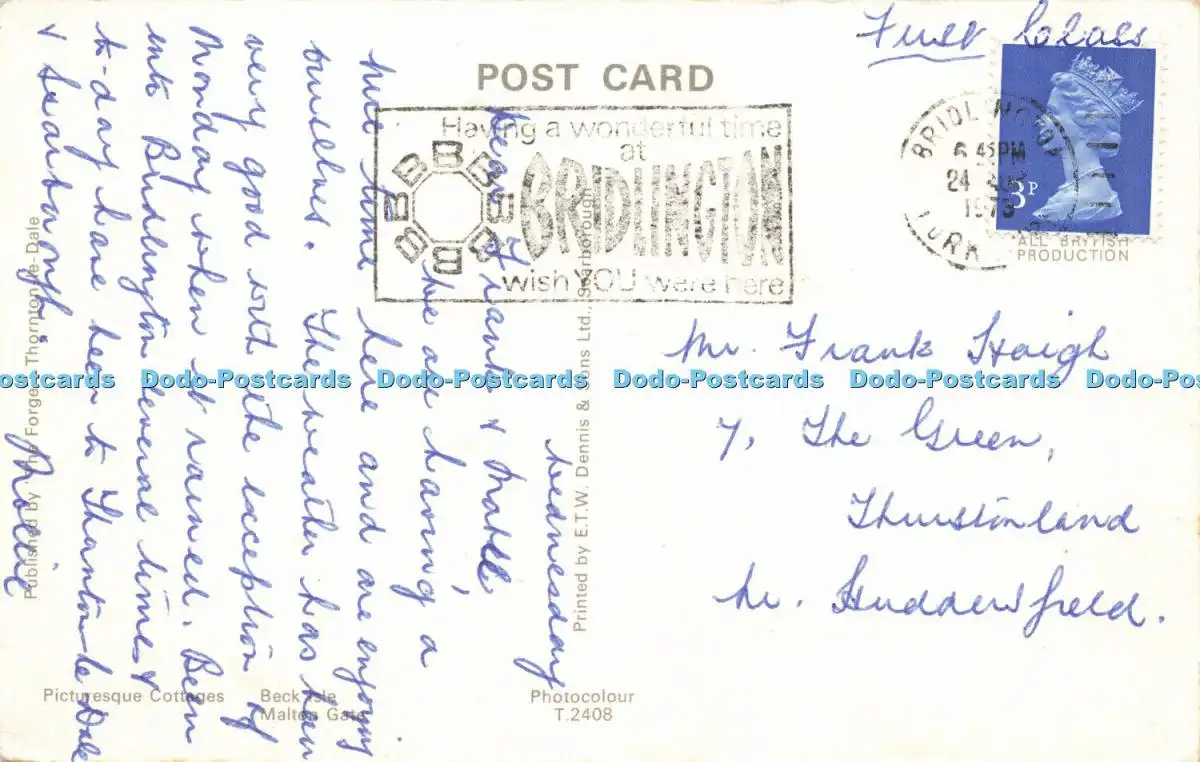 POST CARD
First Class
Having a wonderful time
at
BRIDLINGTON
wish YOU were here
B B B B B B B B
BRIDLINGTON
6 45 PM
24
1973
3P
ALL BRITISH
PRODUCTION
Wednesday
Dear Frank & Mable,
We are having a
nice time here and are enjoying
ourselves. The weather has been
very good with the exception of
Monday when it rained. Been
into Bridlington several times &
to-day have been to Thornton-le-Dale
& Scarborough.
Nellie
Mr. Frank Haigh
7, The Green,
Thurstonland
Nr. Huddersfield.
Published by The Forge, Thornton-le-Dale
Printed by E.T.W. Dennis & Sons Ltd., Scarborough
Picturesque Cottages
Beck Isle
Malton Gate
Photocolour
T.2408
Dodo-Postcards Dodo-Postcards Dodo-Postcards Dodo-Postcards Dodo-Postcards Dodo-Postcards